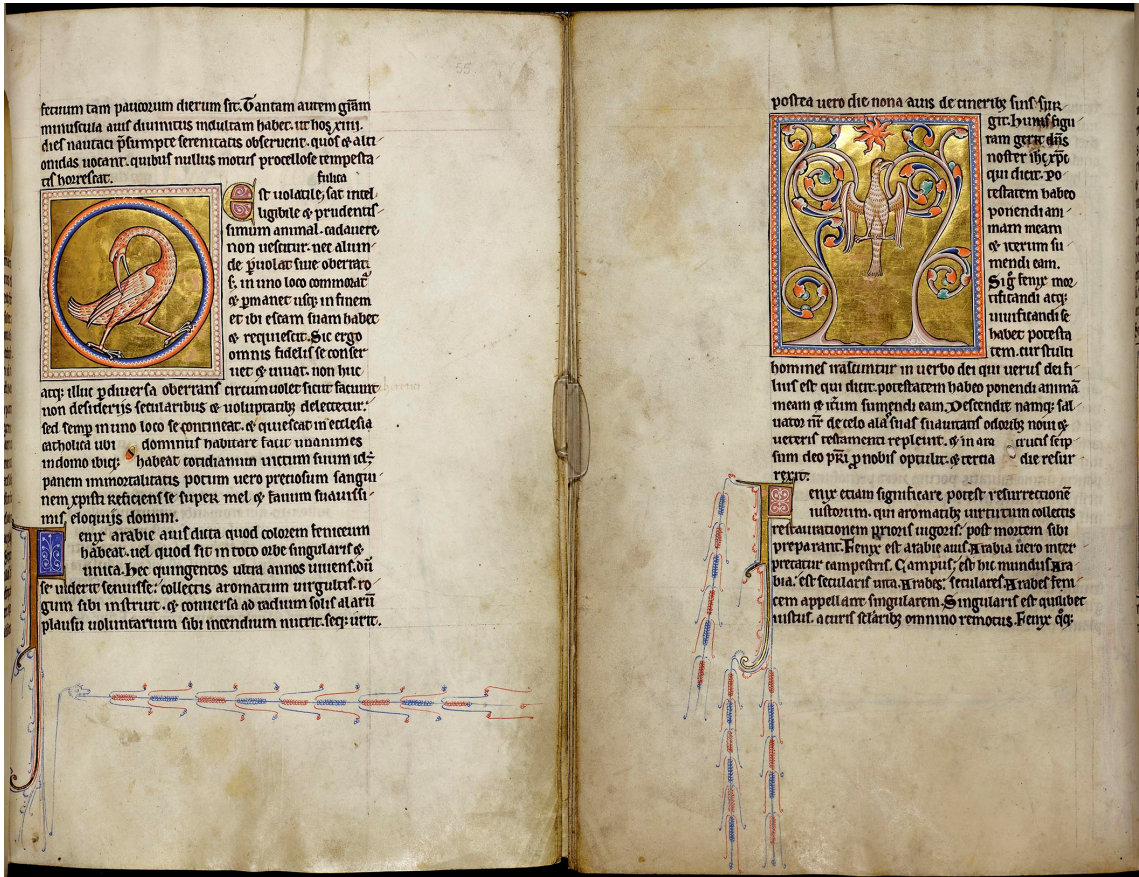 55
fetuum tam paucorum dierum sit. Tantam autem gr̃am
minuscula auis diuinitus indultam habet. ut hos xiiii.
dies nautici p̃sumpte serenitatis obseruent. quos & alci
onidas uocant. quibus nullus motus procellose tempesta
tis horrescat.
fulica
Est uolatile, sat intel
ligibile & prudentis
simum animal. cadauere
non uescitur. nec aliun
de ꝑuolat siue oberrat
s; in uno loco commorat̃
& ꝑmanet usq; in finem
et ibi escam suam habet
& requiescit. Sic ergo
omnis fidelis se conser
uet & uiuat. non huc
atq; illuc ꝑ diuersa oberrans circumuolet sicut faciunt heretici
non desiderijs secularibus & uoluptatib; delectetur.
sed semꝑ in uno loco se contineat. & quiescat in ecclesia
catholica ubi dominus habitare facit unanimes
in domo ibiq; habeat cotidianum uictum suum id;
panem immortalitatis potum uero preciosum sangui
nem xpisti reficiens se super mel & fauum suauissi
mis eloquijs domini.
Fenyx arabie auis dicta quod colorem feniceum
habeat. uel quod sit in toto orbe singularis &
unica. hec quingentos ultra annos uiuens. dũ
se uiderit senuisse: collectis aromatum uirgultis. ro
gum sibi instruit. & conuersa ad radium solis alarũ
plausu uoluntarium sibi incendium nutrit. seq; urit.
postea uero die nona auis de cinerib; suis sur
git. huius figu
ram gerit dñs
noster ihc xp̃c
qui dicit. po
testatem habeo
ponendi ani
mam meam
& iterum su
mendi eam.
Sig̃ fenyx mor
tificandi atq;
uiuificandi se
habet potesta
tem. cur stulti
homines irascuntur in uerbo dei qui uerus dei fi
lius est qui dicit. potestatem habeo ponendi animã
meam & itũm sumendi eam. Descendit namq; sal
uator nr̃ de celo alas suas suauitatis odorib; noui &
ueteris testamenti repleuit. & in ara crucis seip
sum deo pr̃i ꝑ nobis optulit. & tercia die resur
rexit.
Fenyx etiam significare potest resurrectionẽ
iustorum. qui aromatib; uirtutum collectis
restaurationem prioris uigoris. post mortem sibi
preparant. Fenyx est arabie auis. Arabia uero inter
pretatur campestris. Campus, est hic mundus. Ara
bia, est secularis uita. Arabes, seculares. Arabes feni
cem appellant singularem. Singularis est quilibet
iustus. a curis sclãrib; omnino remotus. Fenyx q̃q;